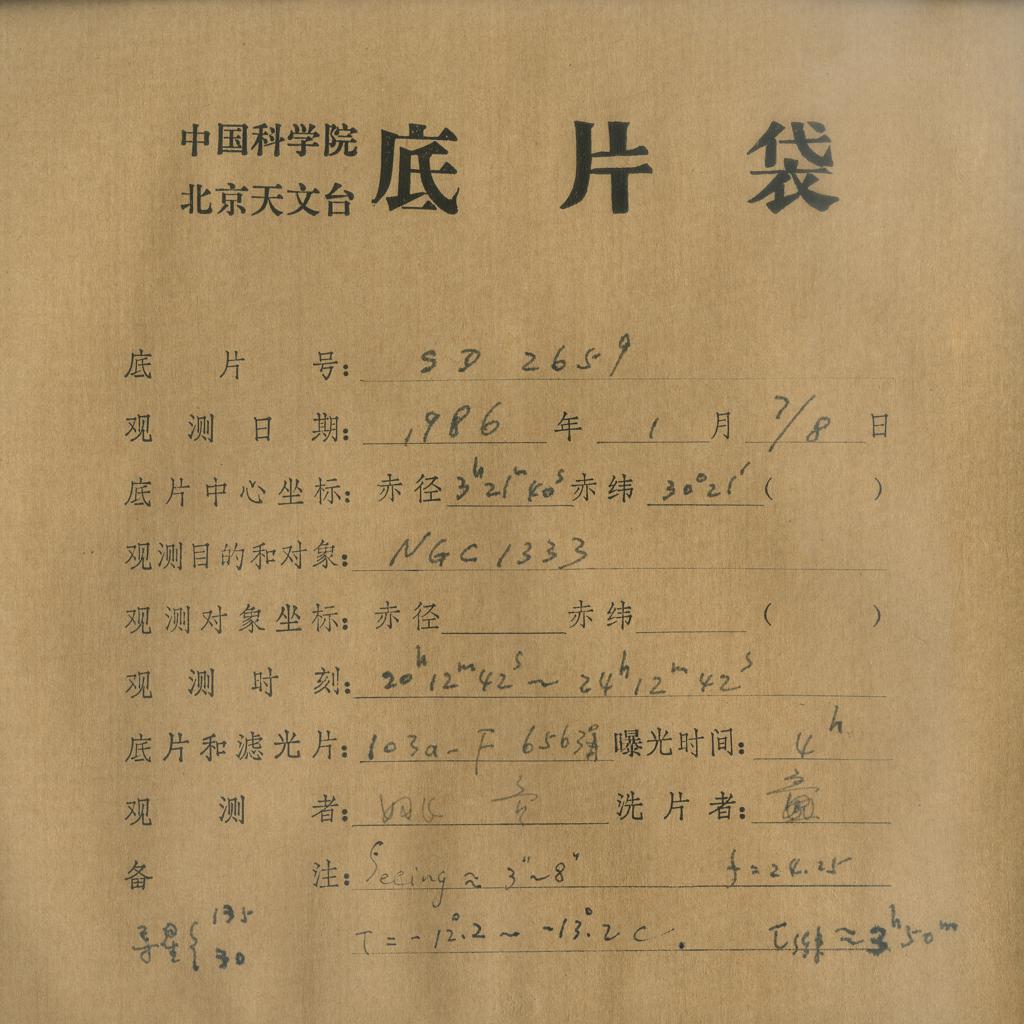 中国科学院
北京天文台
底片袋
底片号: SD 2659
观测日期: 1986 年 1 月 7/8 日
底片中心坐标: 赤径 3h21m40s 赤纬 30°21′ ( )
观测目的和对象: NGC 1333
观测对象坐标: 赤径 赤纬 ( )
观测时刻: 20h12m42s ~ 24h12m42s
底片和滤光片: 103a-F 6563Å 曝光时间: 4h
观测者: 洗片者:
备注: Seeing ≈ 3″~8″ f=24.25
导星{ 135 T = -12°.2 ~ -13°.2 C. ≈ 3h50m
30